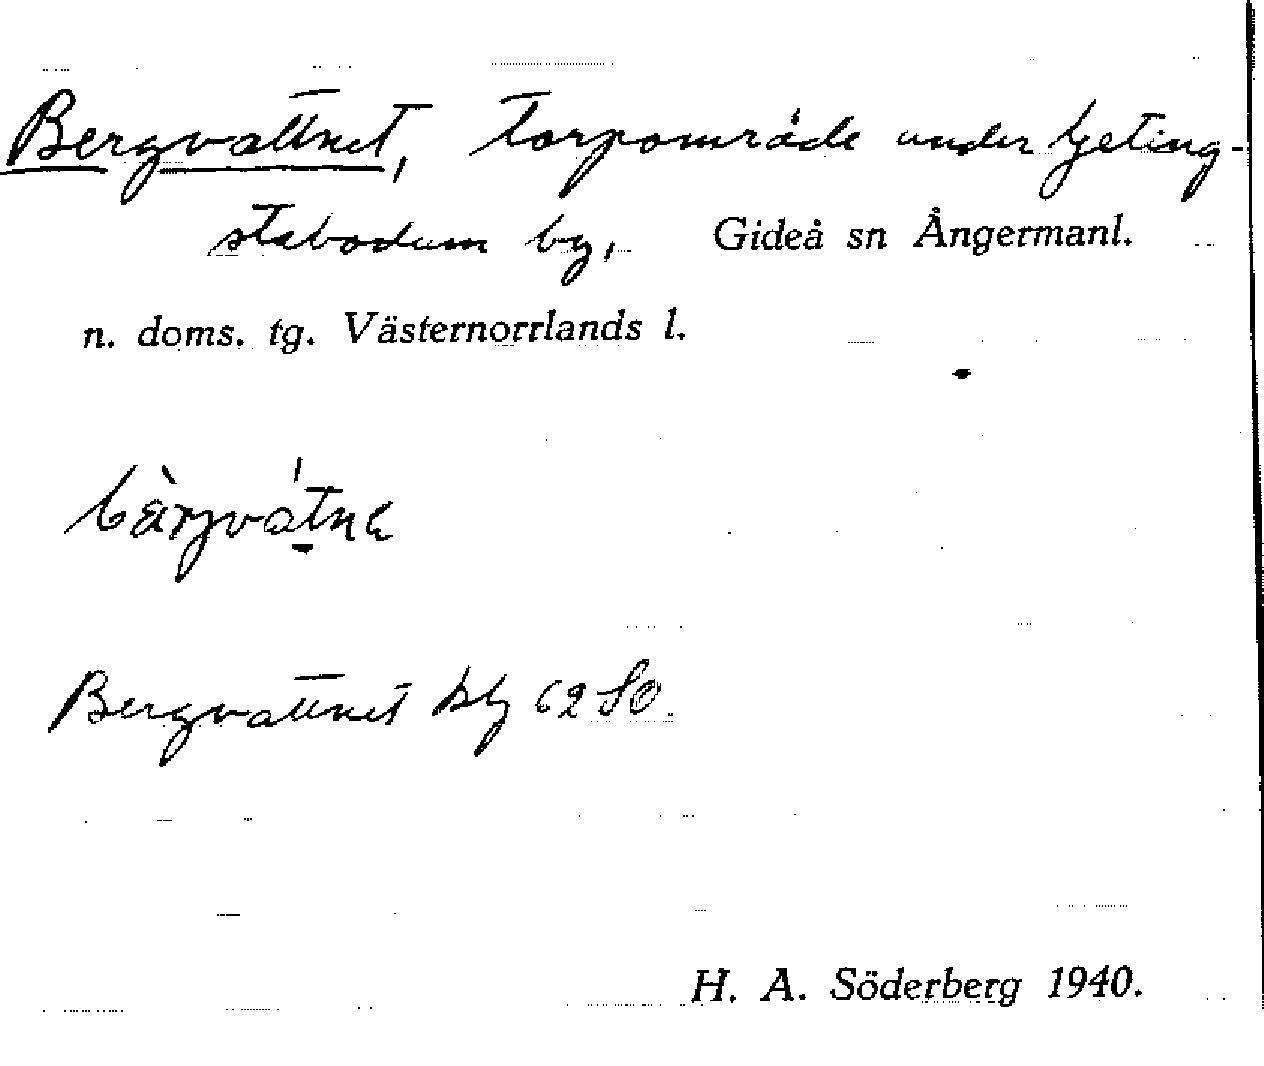 Bergvattnet, Torpområde under Geting-
stabodum by, Gideå sn Ångermanl.
n. doms. tg. Västernorrlands l.
bärjvátnɛ
Bergvattnet kbl 62 SO.
H. A. Söderberg 1940.